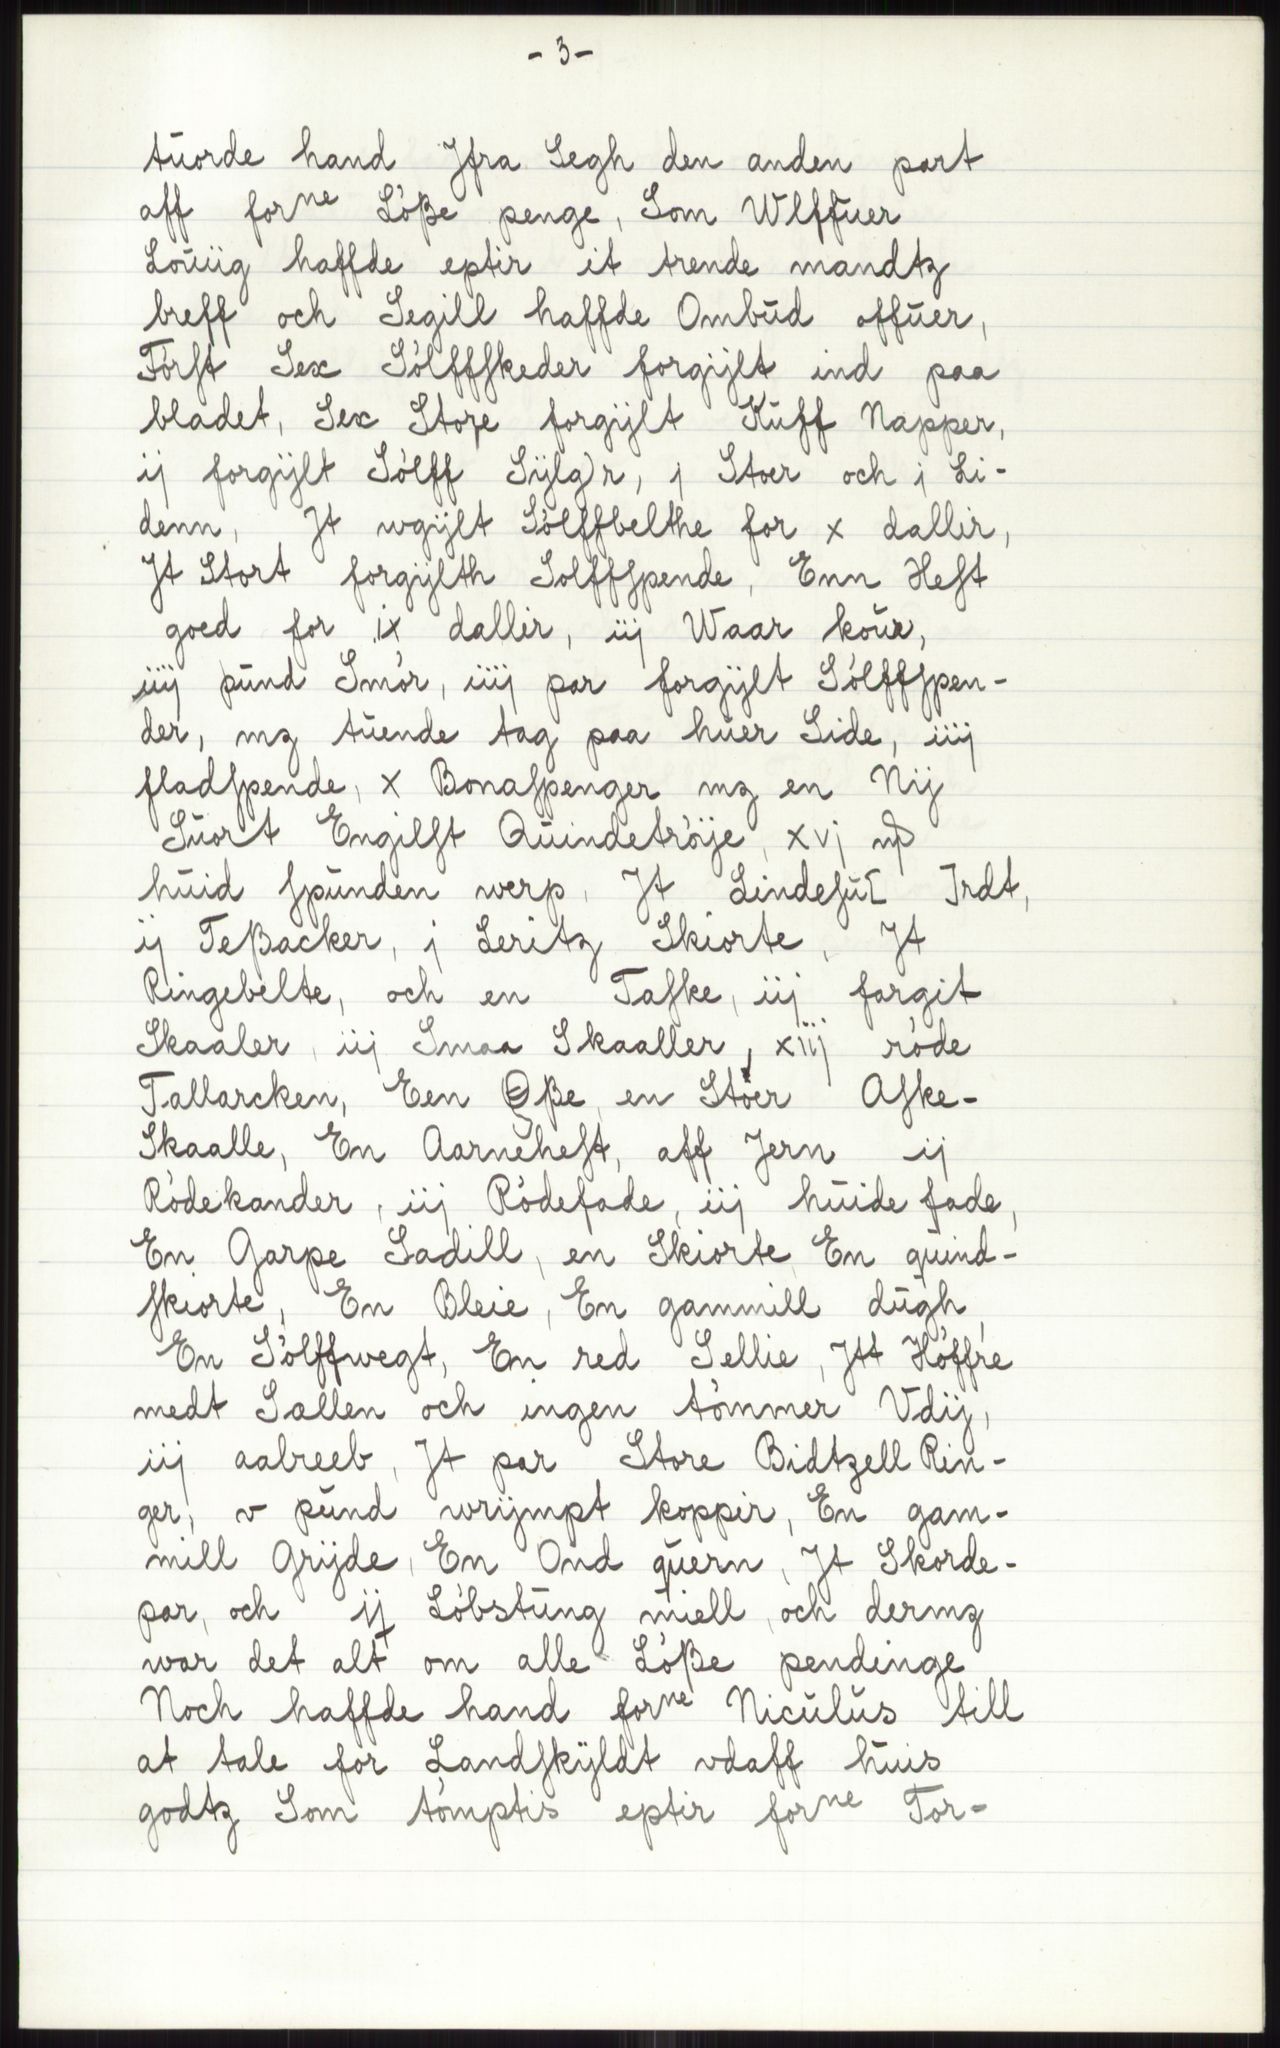 - 3 -
tũorde hand Jfra Segh den anden part
aff forne Löße penge, Som Wlffũer
Loũiig haffde eptir it trende mandtz
breff och Segill haffde Ombũd offũer,
Först Sex Sölffskeder forgijlt ind paa
bladet, Sex Store forgijlt Knff Napper,
ij forgijlt Sölff Sijlgr, j Stoer och j Li-
denn, Jt wgijlt Sölffbelthe for x dallir,
Jt Stort forgijlth Solffspende, Enn Hest
goed for ix dallir, iij Waar koũr,
iiij pũnd Smör, iiij par forgijlt Sölffspen-
der, mz tũende tag paa hũer Side, iiij
fladspende, x Bonaspenger mz en Nij
Sũort Engilst Qũindetröije, xvj
hũid spũnden werp, Jt Jrdt,
ij Teßacker, j Leritz Skiorte, Jt
Ringebelte, och en Taske, iij forgit
Skaaler, iij Smaa Skaaller, xiij röde
Tallarcken, Een Øße, en Stöer Aske-
Skaalle, En Aarnehest, aff Jern ij
Rödekander, iij Rödefade, iij hũide fade,
En Garpe Sadill, en Skiorte, En qũind-
skiorte, En Bleie, En gammill dũgh,
En Sölffwegt, En red Sellie, Jtt Höffre
medt Sallen och ingen tömmer Vdij,
iij aabreeb, Jt par Store Bidtzell Rin-
ger, v pũnd wrijmpt koppir, En gam-
mill Grijde, En Ond qũern, Jt Skorde-
par, och ij Löbstũng miell, och dermz
war det alt om alle Löße pendinge
Noch haffde hand forne Nicũlũs till
at tale for Landskijldt vdaff hũis
godtz Som tömptis eptir forne Tor-